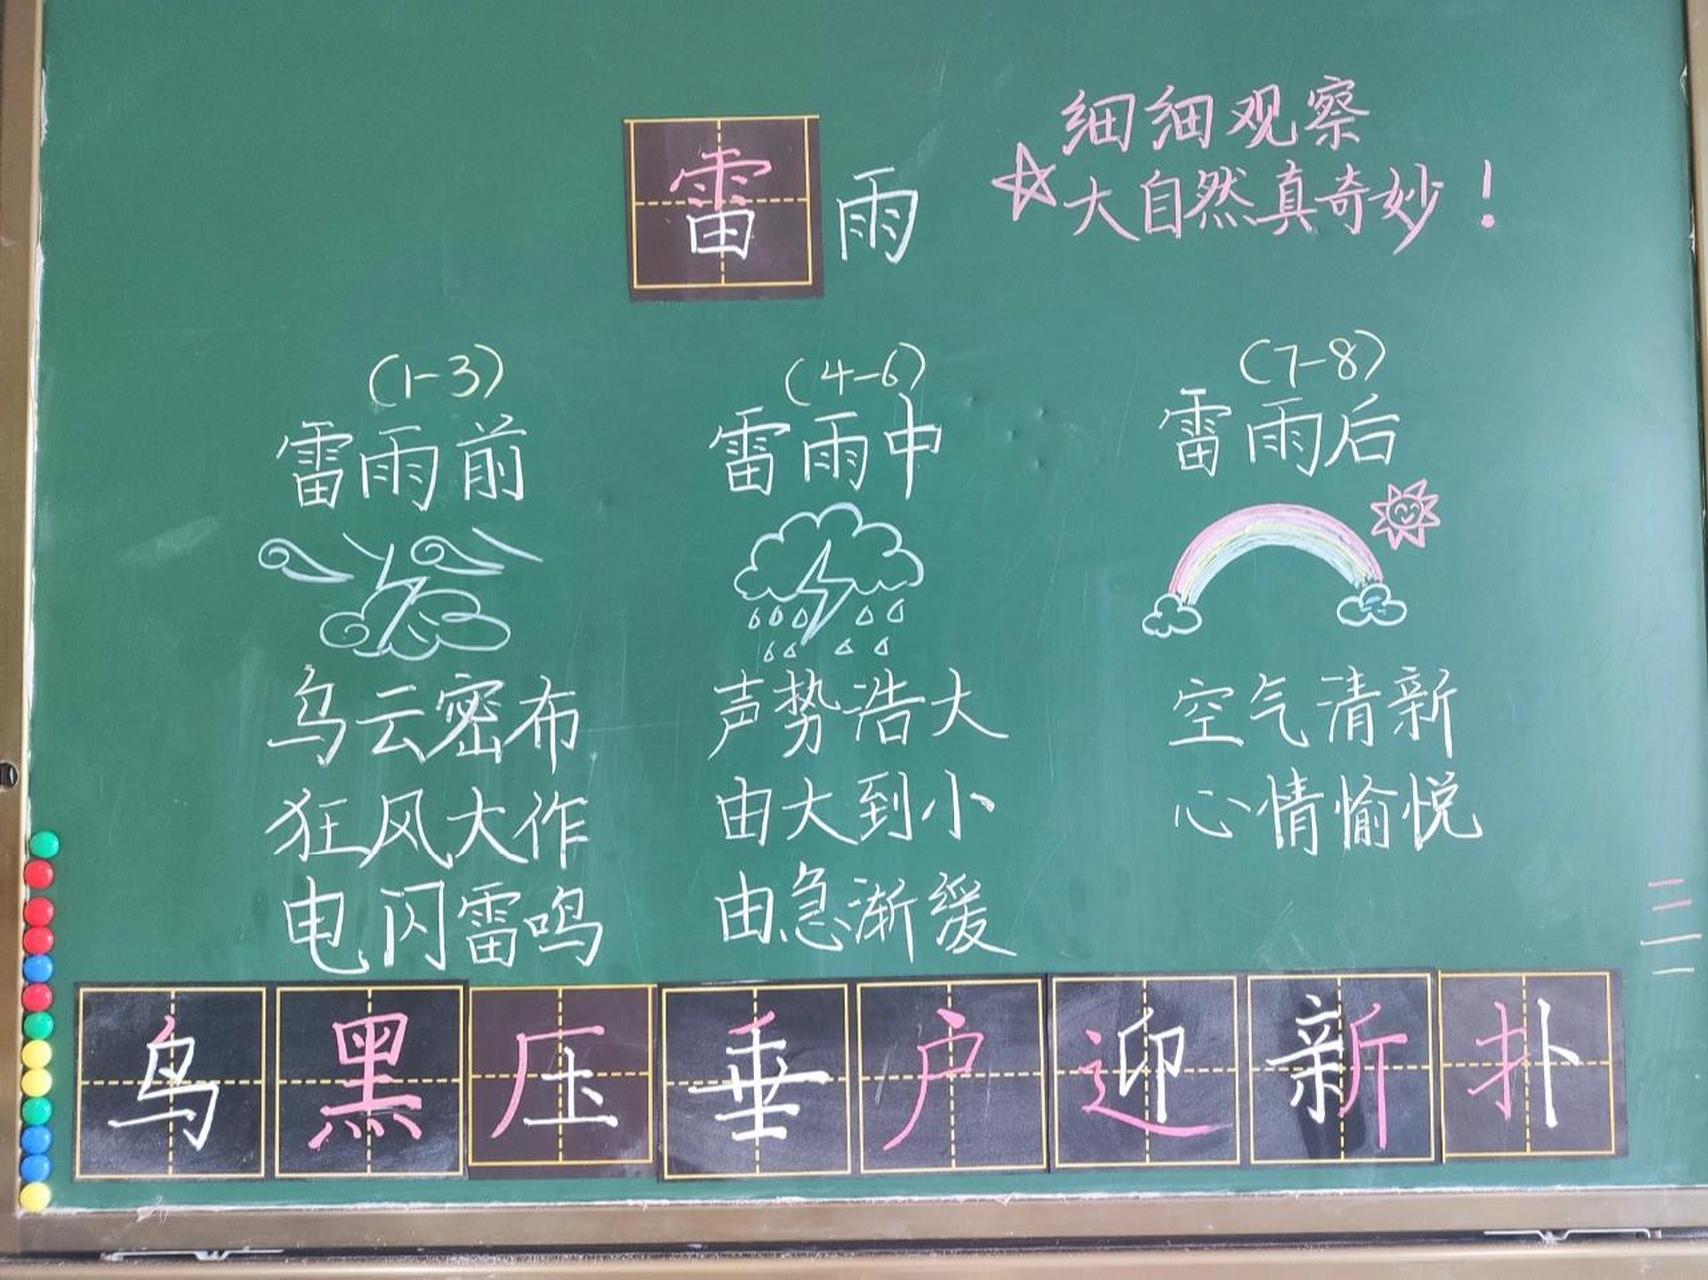 雷雨
细细观察
☆大自然真奇妙！
(1-3)
雷雨前
乌云密布
狂风大作
电闪雷鸣
(4-6)
雷雨中
声势浩大
由大到小
由急渐缓
(7-8)
雷雨后
空气清新
心情愉悦
乌 黑 压 垂 户 迎 新 扑